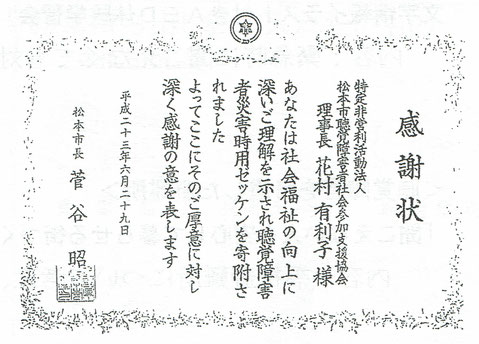 感謝状
特定非営利活動法人
松本市聴覚障害者社会参加支援協会
理事長 花村 有利子 様
あなたは社会福祉の向上に
深いご理解を示され聴覚障害
者災害時用ゼッケンを寄附さ
れました
よってここにそのご厚意に対し
深く感謝の意を表します
平成二十三年六月二十九日
松本市長 菅谷 昭